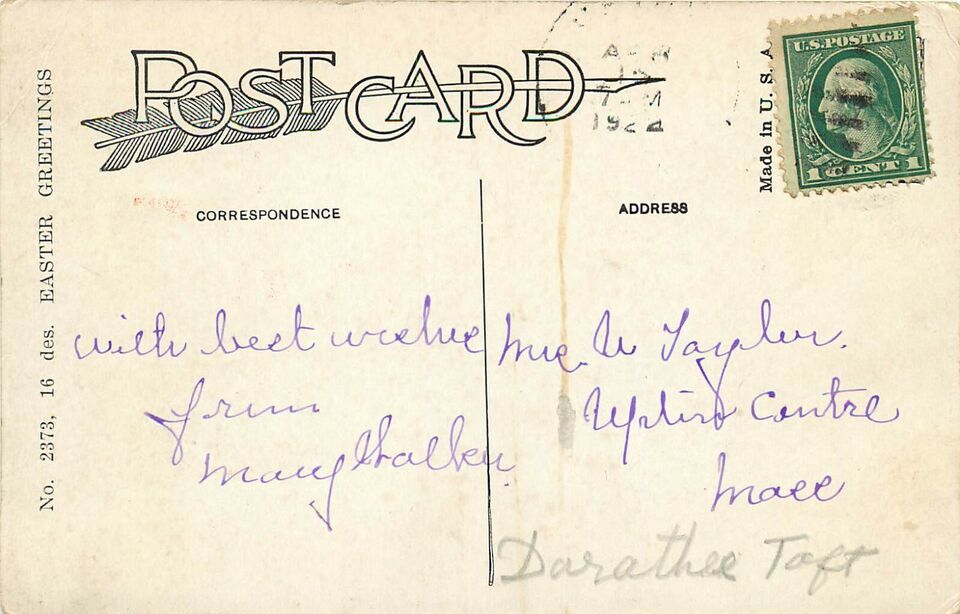 POST CARD
APR
15
7-M
1922
Made in U. S. A
U.S. POSTAGE
1 CENT 1
No. 2373, 16 des. EASTER GREETINGS
CORRESPONDENCE
ADDRESS
with best wishes
from
Mary Walker
Mrs. W Taylor.
Upton Centre
Mass
Dorathee Taft